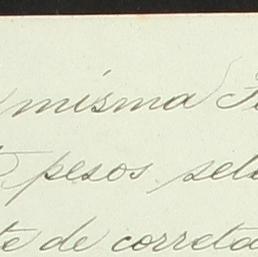 misma
pesos
te de correta